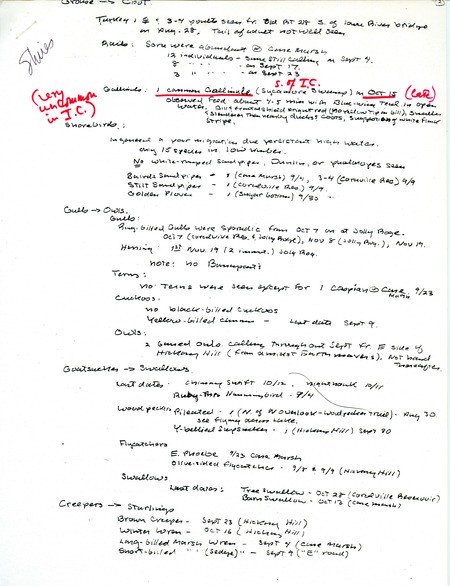 Grouse → Coot
③
Turkey 1 & 3-4 poults seen fr Old Rt 28 S. of Iowa River bridge
on Aug. 28, Tail of adult not well seen.
Rails: Sora were abundant @ Cone Marsh
12 individuals - some still calling on Sept 4.
8 " on Sept 17.
3 " on Sept 23
S. of I.C.
Gallinule: 1 Common Gallinule (Sycamore Sweep) on Oct 15 (late)
(very uncommon in I.C.)
observed feed about 45 min with Blue-wing Teal in open
water.
Stripe.
Shorebirds:
poor migration due persistent high water.
only 15 species in low number.
No white-rumped Sandpiper, Dunlin, or phalaropes seen
Bairds Sandpiper - 1 (Cone Marsh) 9/4, 3-4 (Coralville Res) 9/9
Stilt Sandpiper - 1 (Coralville Res) 9/9.
Golden Plover - 1 (Sugar Bottom) 9/30
Gulls → Owls:
Gulls:
Ring-billed Gulls were sporadic from Oct 7 on at Jolly Roger.
Oct 7 (Coralville Res. & Jolly Roger), Nov 8 (Jolly Rog.), Nov 19.
Herring: 1st Nov. 19 (2 imm.) Jolly Rog.
note: no Bonaparte's
Terns:
no Terns were seen except for 1 Caspian @ Cone Marsh 9/23
Cuckoos:
no black-billed cuckoos
Yellow-billed - last date Sept 9.
Owls:
2 Barred Owls calling throughout Sept fr E side of
Hickory Hill, Not heard
thereafter.
Goatsuckers → Swallows
Last dates: Chimney Swift 10/12, nighthawk 10/11
Ruby-thr. Hummingbird - 9/4
Woodpeckers Pileated - 1 (N. of W Overlook - Woodpecker Trail) - Aug 30
see flying across lake.
Y-bellied Sapsucker - 1 (Hickory Hill) Sept 30
Flycatchers
E. Phoebe 9/23 Cone Marsh
Olive-sided Flycatcher - 9/8 & 9/9 (Hickory Hill)
Swallows
Last dates: Tree Swallow - Oct 28 (Coralville Reservoir)
Barn Swallow - Oct 13 (Cone Marsh)
Creepers → Starlings
Brown Creeper - Sept 23 (Hickory Hill)
Winter Wren - Oct 16 (Hickory Hill)
Long-billed Marsh Wren - Sept 4 (Cone Marsh)
Short-billed " " (Sedge) " - Sept 9 ("E" road)